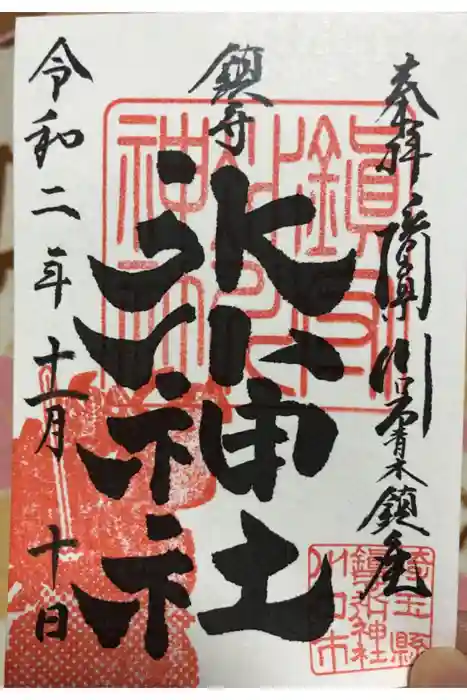 奉拝 武蔵國川口市青木鎮座
鎮守
氷川神社
令和二年十一月二十日
鎮守氷川神社
埼玉縣
鎮守氷川神社
川口市